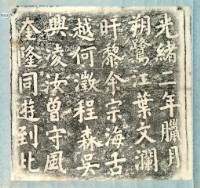 光緒二年臘月
朔鷺江葉文瀾
黎宗海古
越何澂程森吳
興凌汝曾守風
隆同遊到此